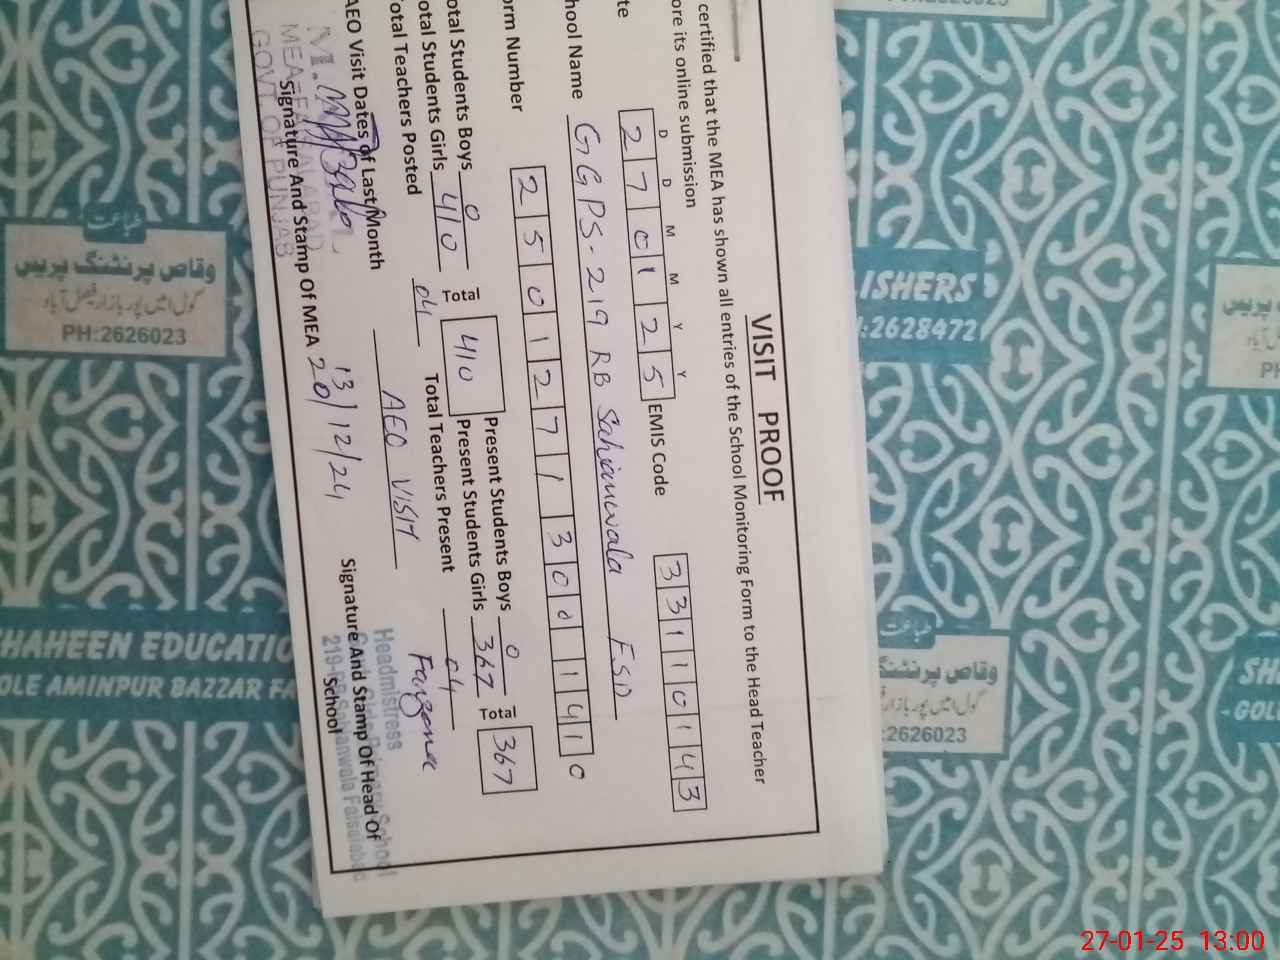 VISIT PROOF
certified that the MEA has shown all entries of the School Monitoring Form to the Head Teacher
ore its online submission
D D M M Y Y
te 2 7 0 1 2 5 EMIS Code 3 3 1 1 0 1 4 3
hool Name GGPS-219 RB Sahianwala FSD
orm Number 2 5 0 1 2 7 1 3 0 0 1 4 1 0
otal Students Boys 0 Total 410 Present Students Boys 0 Total 367
otal Students Girls 410 Present Students Girls 367
otal Teachers Posted 04 Total Teachers Present 04
AEO Visit Dates of Last Month AEO VISIT
13/12/24
20
Signature And Stamp Of MEA
MEA-FAISALABAD
GOVT. OF PUNJAB
Farzana
Signature And Stamp Of Head Of
School
Headmistress
School
219-RB Sahianwala Faisalabad
وقاص پرنٹنگ پریس
گول امیں پور بازار فیصل آباد
PH:2626023
LISHERS
:2628472
HAHEEN EDUCATIO
OLE AMINPUR BAZZAR FA
طباعت
وقاص پرنٹنگ پریس
2626023
SH
- GOL
27-01-25 13:00